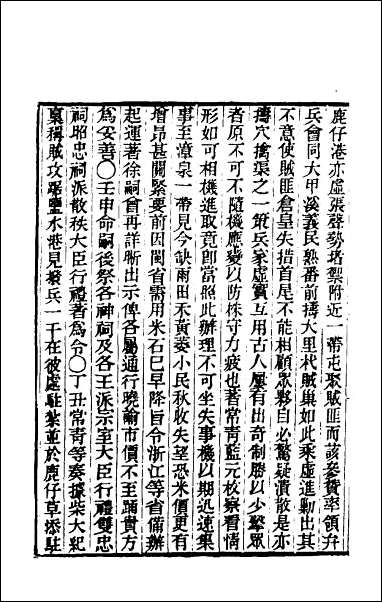 鹿仔港亦虛張聲勢堵禦附近一帶屯聚賊匪而該參贊率領弁
兵會同大甲溪義民熟番前擣大里杙賊巢如此乘虛進勦出其
不意使賊匪倉皇失措首尾不能相顧眾夥自必驚疑潰散是亦
擣穴擒渠之一策兵家虛實互用古人屢有出奇制勝以少擊眾
者原不可不隨機應變以防株守力疲也著常青藍元枚察看情
形如可相機進取竟卽當照此辦理不可坐失事機以期迅速集
事至漳泉一帶見今缺雨田禾黃萎小民秋收失望恐米價更有
增昂甚關緊要前因閩省需用米石已早降旨令浙江等省備辦
起運著徐嗣曾再詳晰出示俾各屬通行曉諭市價不至踊貴方
為妥善〇壬申命嗣後祭各神祠及各王派宗室大臣行禮雙忠
祠昭忠祠派散秩大臣行禮著為令〇丁丑常青等奏據柴大紀
稟稱賊攻踞鹽水港見撥兵一千在彼處駐紮並於鹿仔草添駐